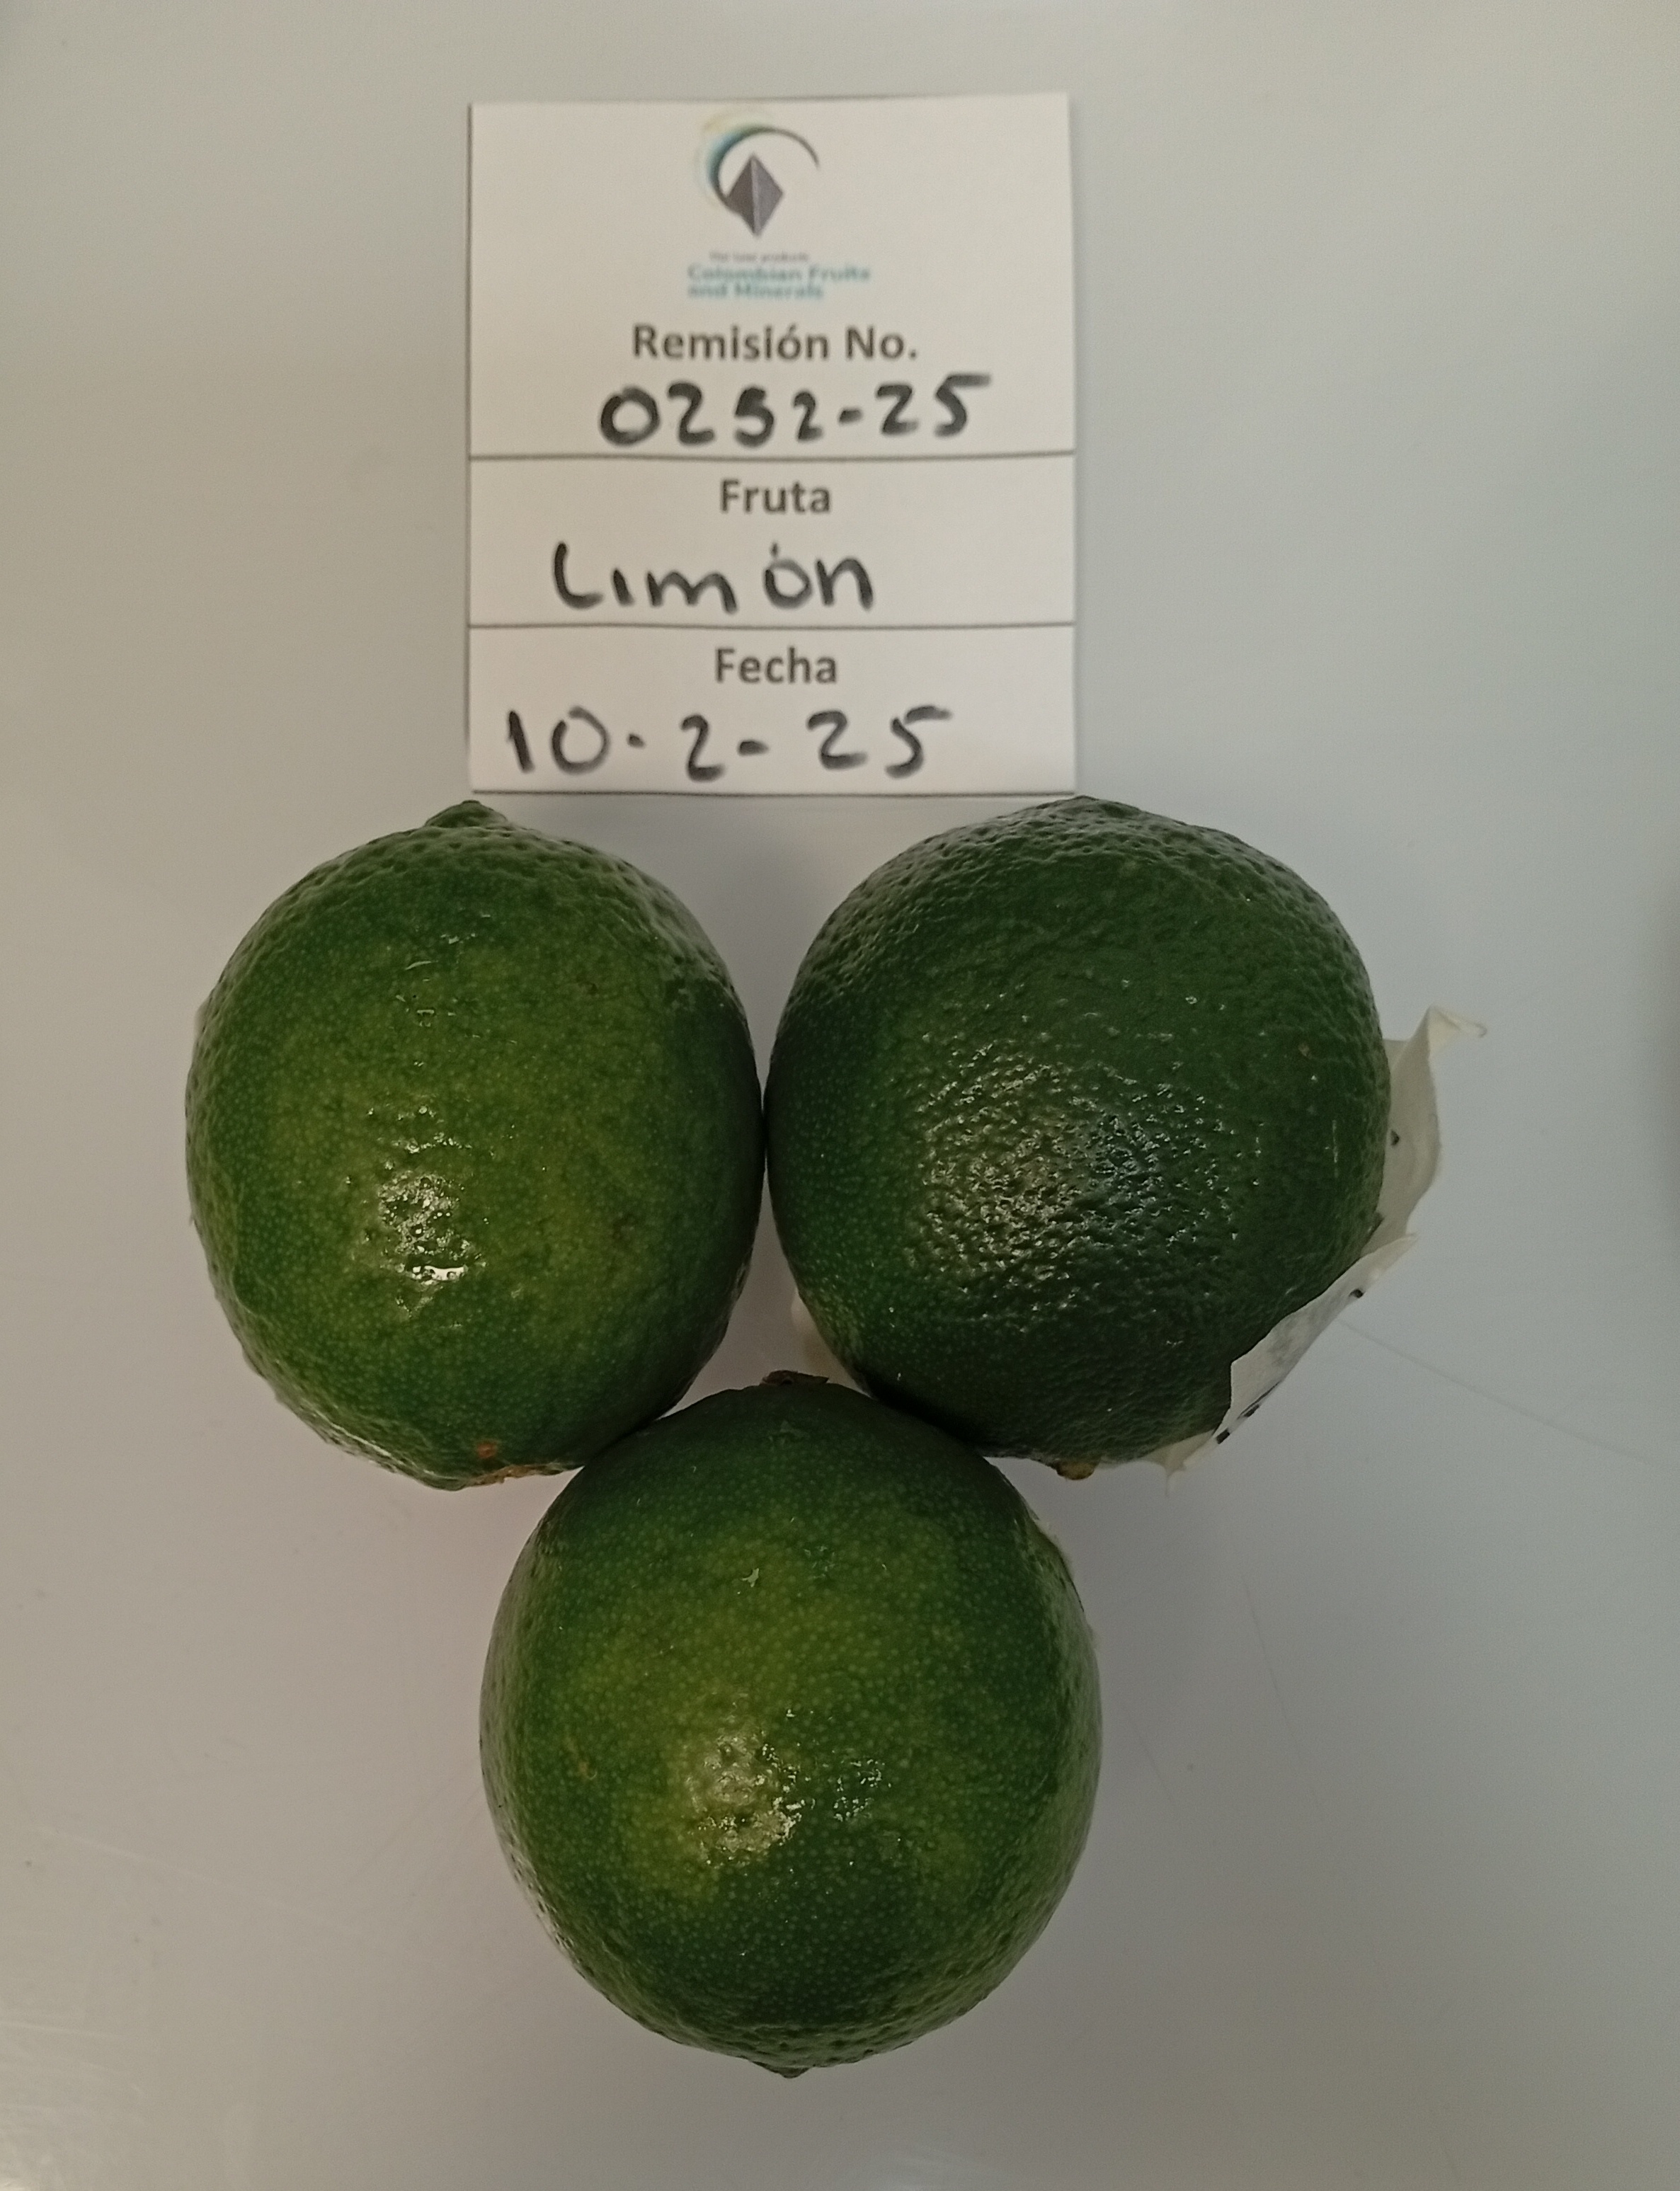 Colombian Fruits
and Minerals
Remisión No.
0252-25
Fruta
Limón
Fecha
10-2-25